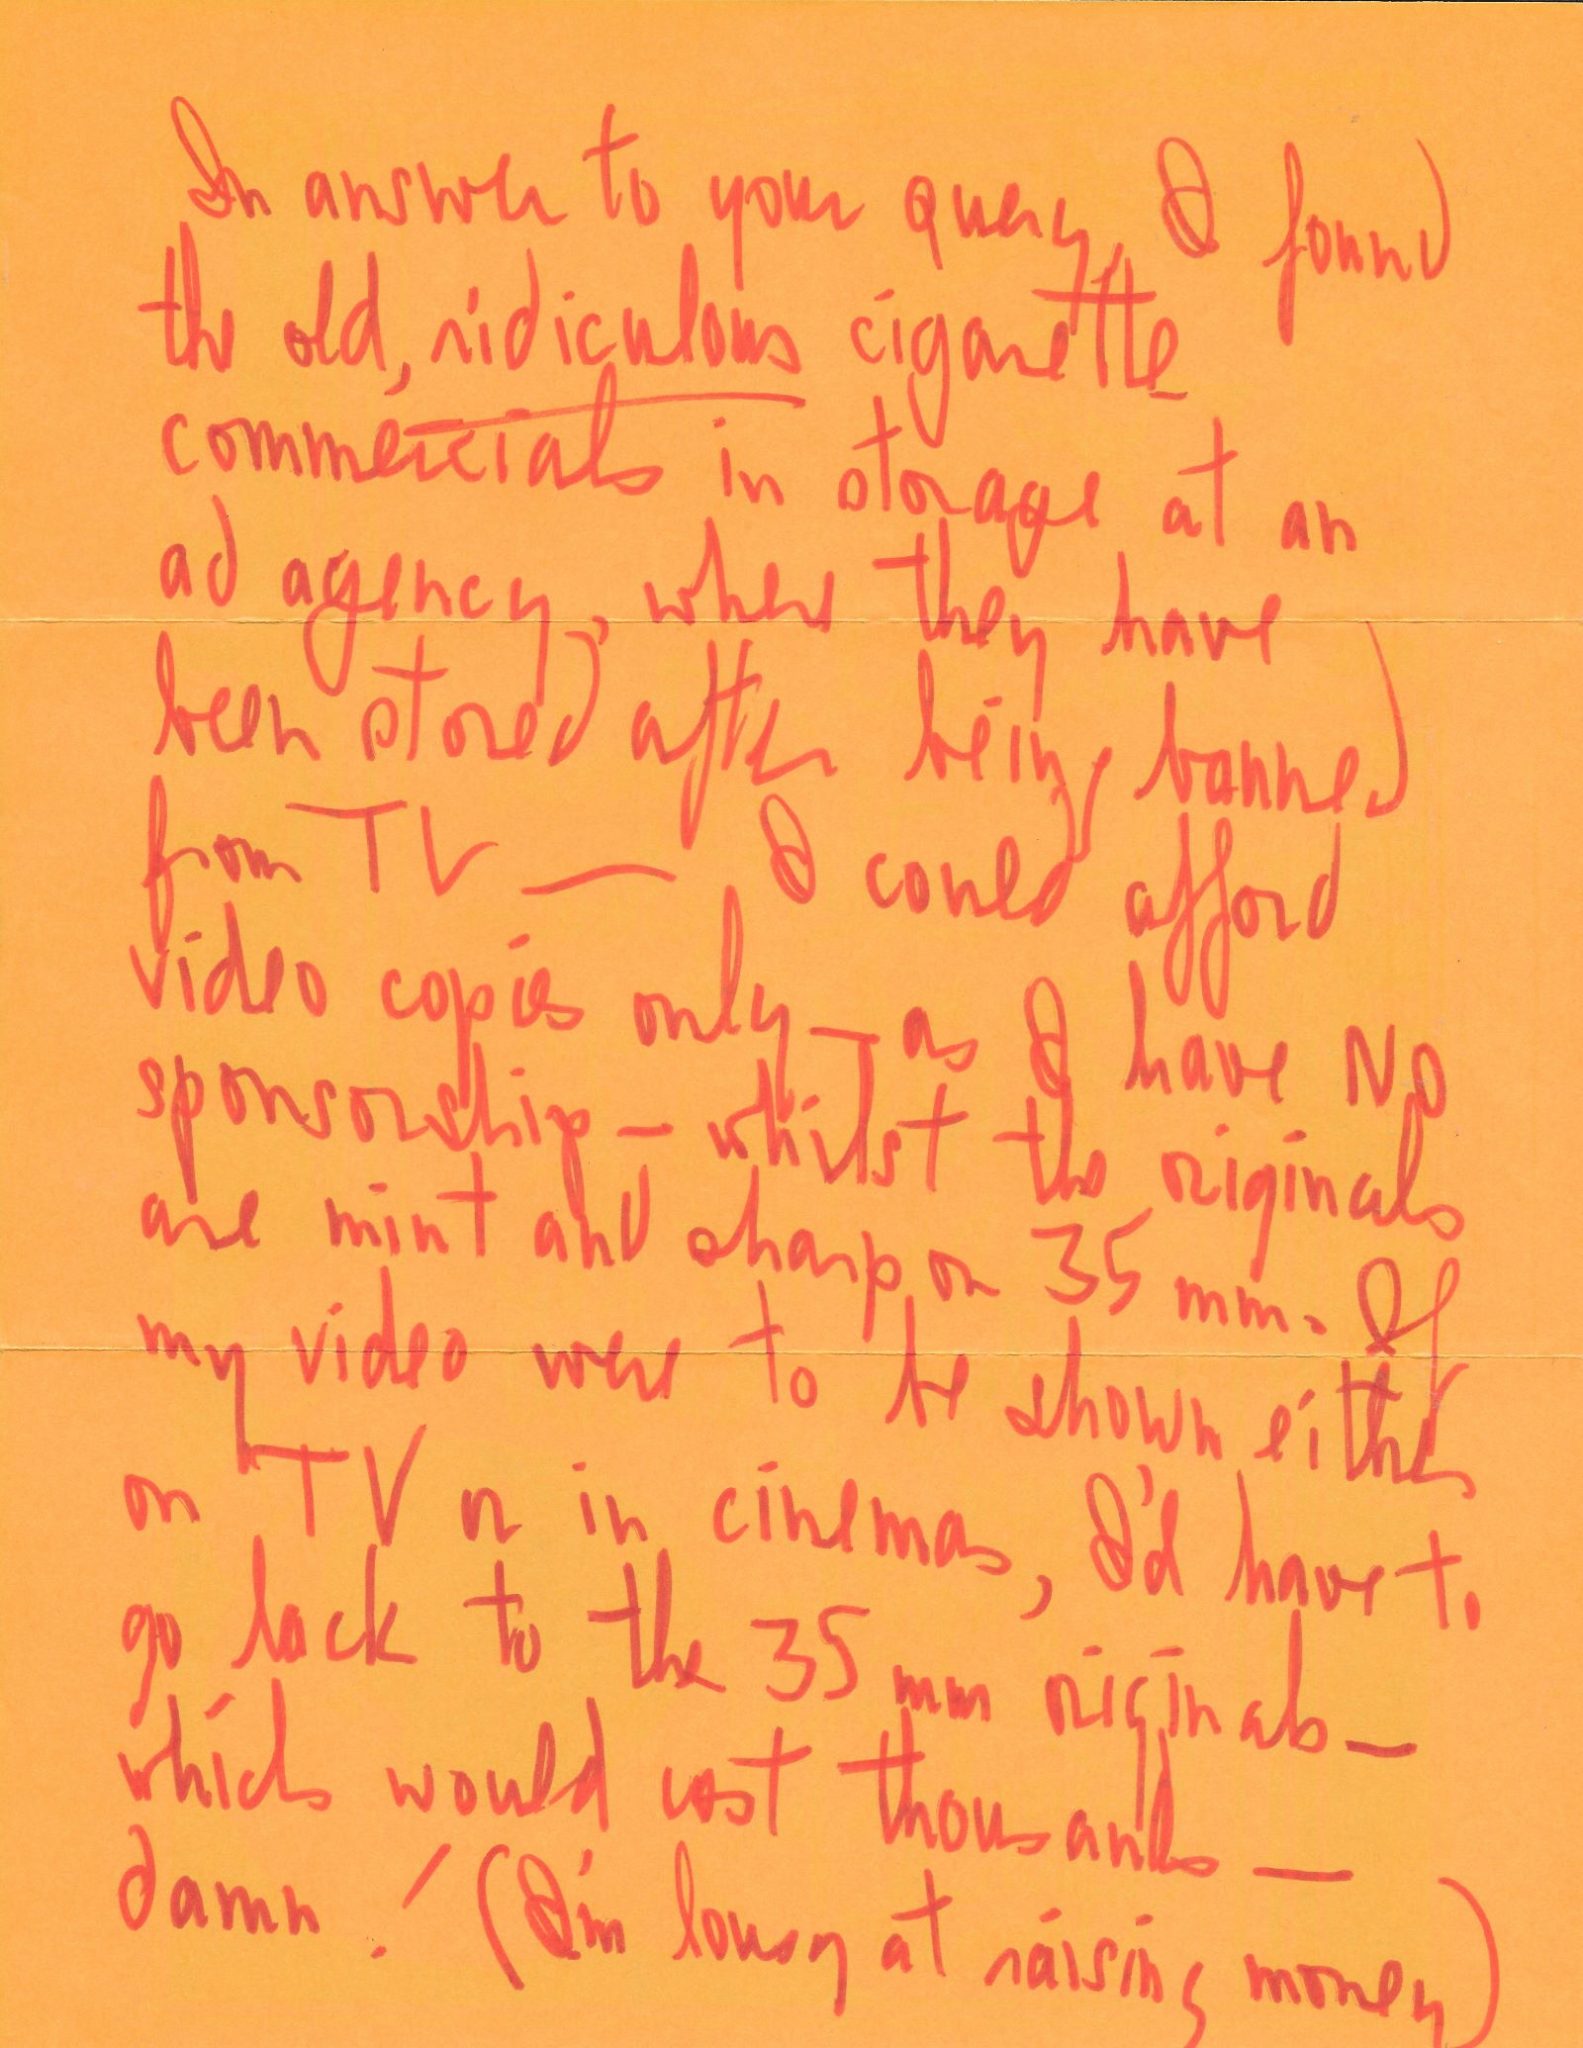 In answer to your query, I found
the old, ridiculous cigarette
commercials in storage at an
ad agency, where they have
been stored after being banned
from TV — I could afford
video copies only — as I have NO
sponsorship — whilst the originals
are mint and sharp on 35 mm. If
my video were to be shown either
on TV or in cinemas, I'd have to
go back to the 35 mm originals —
which would cost thousands —
damn! (I'm lousy at raising money)